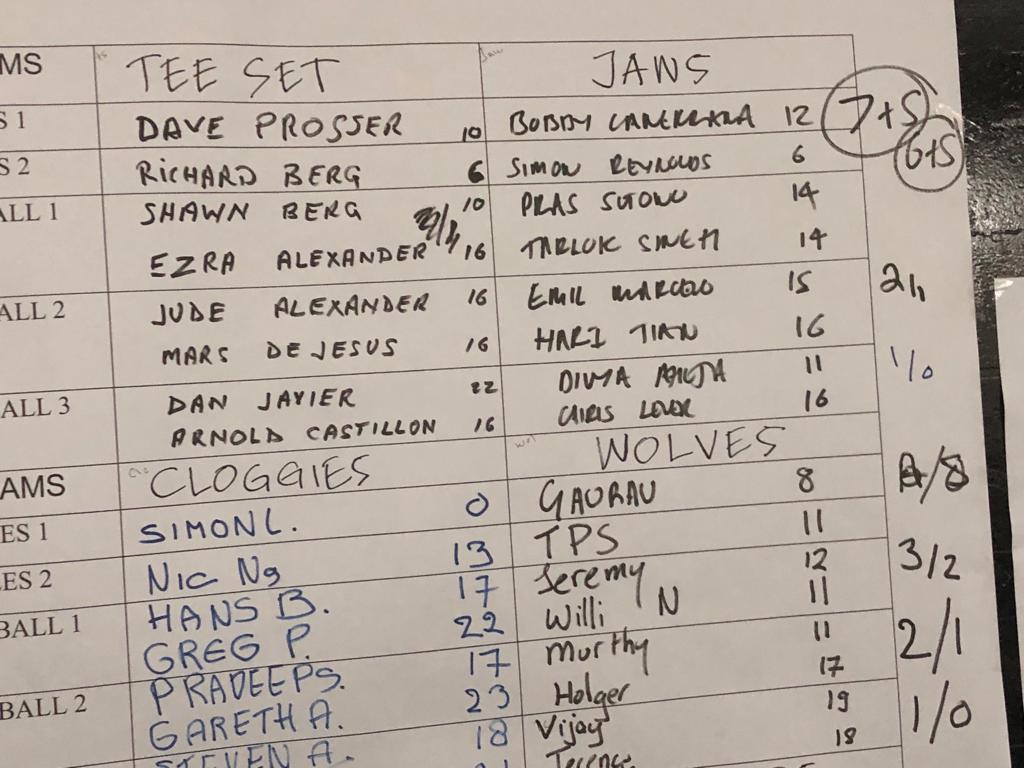 MS TEE SET JAWS
S 1 DAVE PROSSER 10 BOBBY 12 7+5
S 2 RICHARD BERG 6 SIMON REYNOLDS 6 6+5
ALL 1 SHAWN BERG 10 PRAS 14
EZRA ALEXANDER 16 TARLOK SINGH 14
ALL 2 JUDE ALEXANDER 16 EMIL MARCELO 15 2/1
MARS DE JESUS 16 HARI TIAN 16
ALL 3 DAN JAVIER 22 DIVYA 11 1/0
ARNOLD CASTILLON 16 CHRIS LEVER 16
AMS CLOGGIES WOLVES
ES 1 SIMON L. 0 GAURAV 8
ES 2 NIC Ng 13 TPS 11 3/2
BALL 1 HANS B. 17 Jeremy 12
GREG P. 22 Willi N 11 2/1
BALL 2 PRADEEP S. 17 Murthy 11
GARETH A. 23 Holger 17 1/0
STEVEN A. 18 Vijay 19
Terence 18